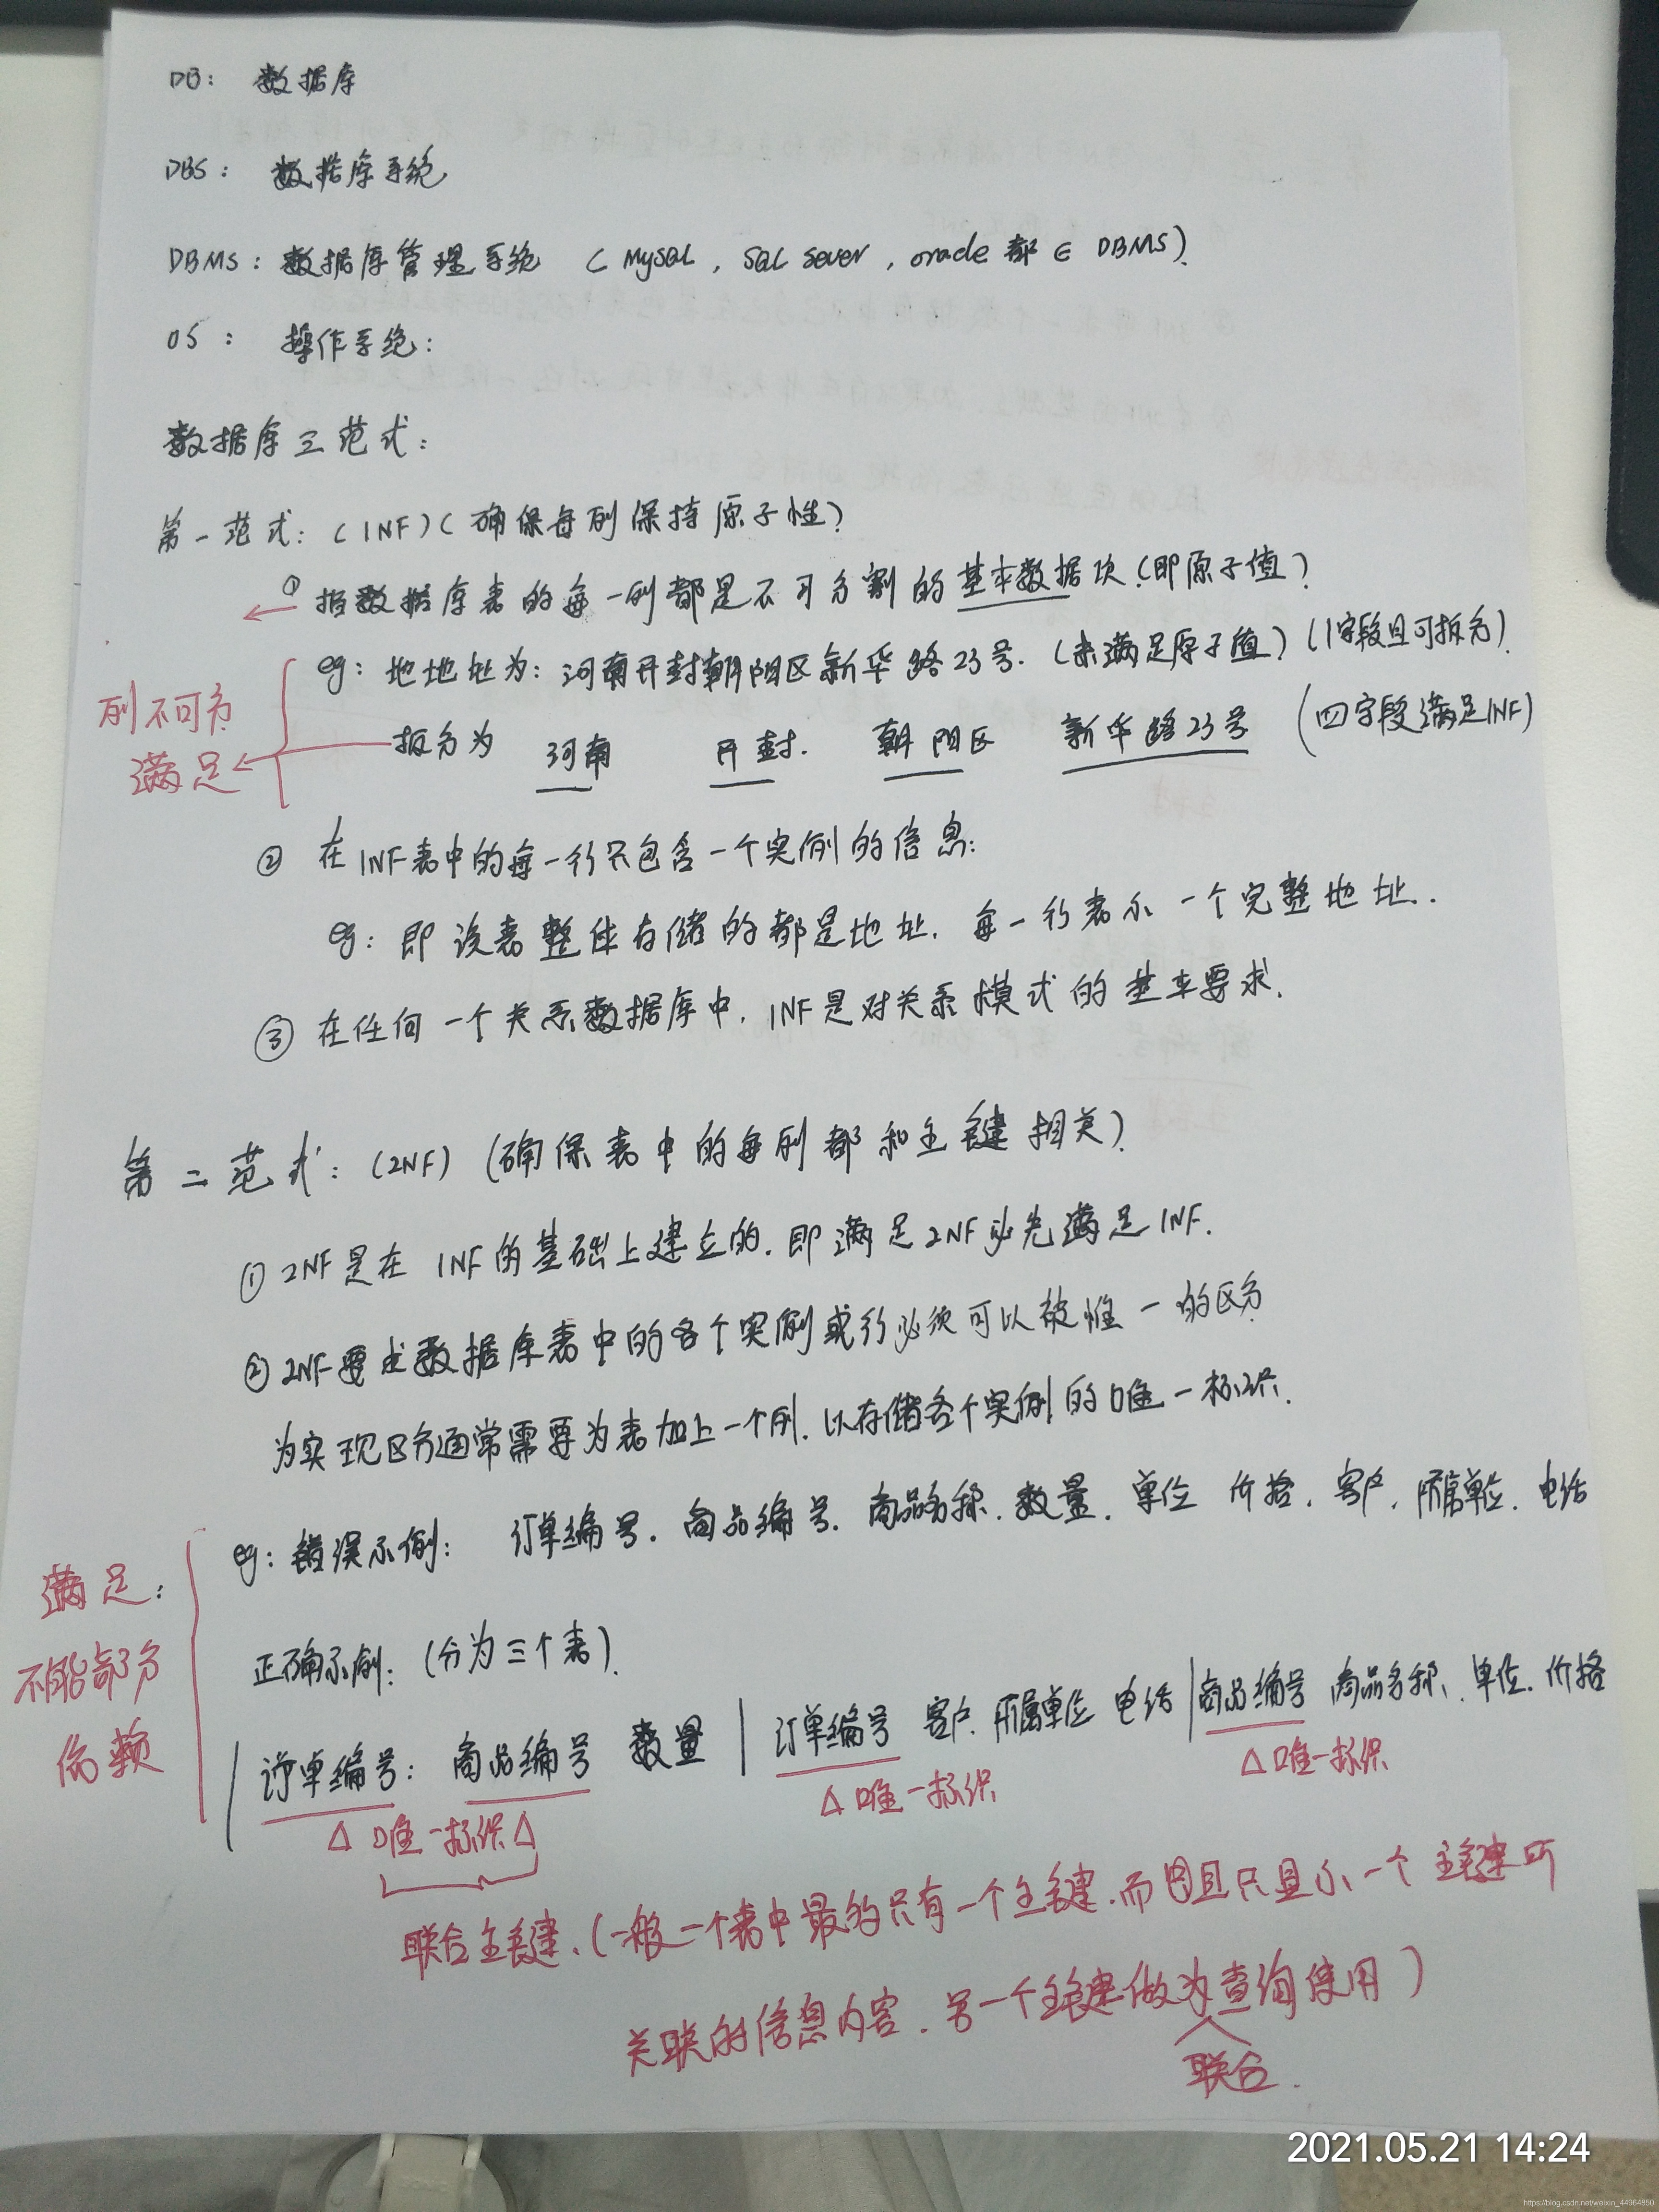 DB: 数据库
DBS: 数据库系统
DBMS: 数据库管理系统 (MySQL, SQL Sever, oracle 都 ∈ DBMS).
OS: 操作系统:
数据库三范式:
第一范式: (1NF) (确保每列保持原子性)
① 指数据库表的每一列都是不可分割的基本数据项 (即原子值)
eg: 地地址为: 河南开封朝阳区新华路23号. (未满足原子值) (1字段且可拆分).
列不可分
拆分为 河南 开封. 朝阳区 新华路23号 (四字段满足1NF)
满足
② 在1NF表中的每一行只包含一个实例的信息:
eg: 即该表整体存储的都是地址. 每一行表示一个完整地址..
③ 在任何一个关系数据库中, 1NF是对关系模式的基本要求.
第二范式: (2NF) (确保表中的每列都和主键相关).
① 2NF是在 1NF的基础上建立的. 即满足2NF必先满足1NF.
② 2NF要求数据库表中的各个实例或行必须可以被惟一的区分
为实现区分通常需要为表加上一个列. 以存储各个实例的唯一标识.
eg: 错误示例: 订单编号. 商品编号. 商品名称. 数量. 单位 价格. 客户. 所属单位. 电话
满足:
不能部分
依赖
正确示例: (分为三个表).
订单编号: 商品编号 数量 | 订单编号 客户. 所属单位 电话 | 商品编号 商品名称. 单位. 价格
△ 唯一标识 △ △ 唯一标识 △ 唯一标识
联合主键. (一般一个表中最多只有一个主键. 而且只显示一个主键所
关联的信息内容. 另一个主键做为查询使用)
联合.
2021.05.21 14:24
https://blog.csdn.net/weixin_44964850